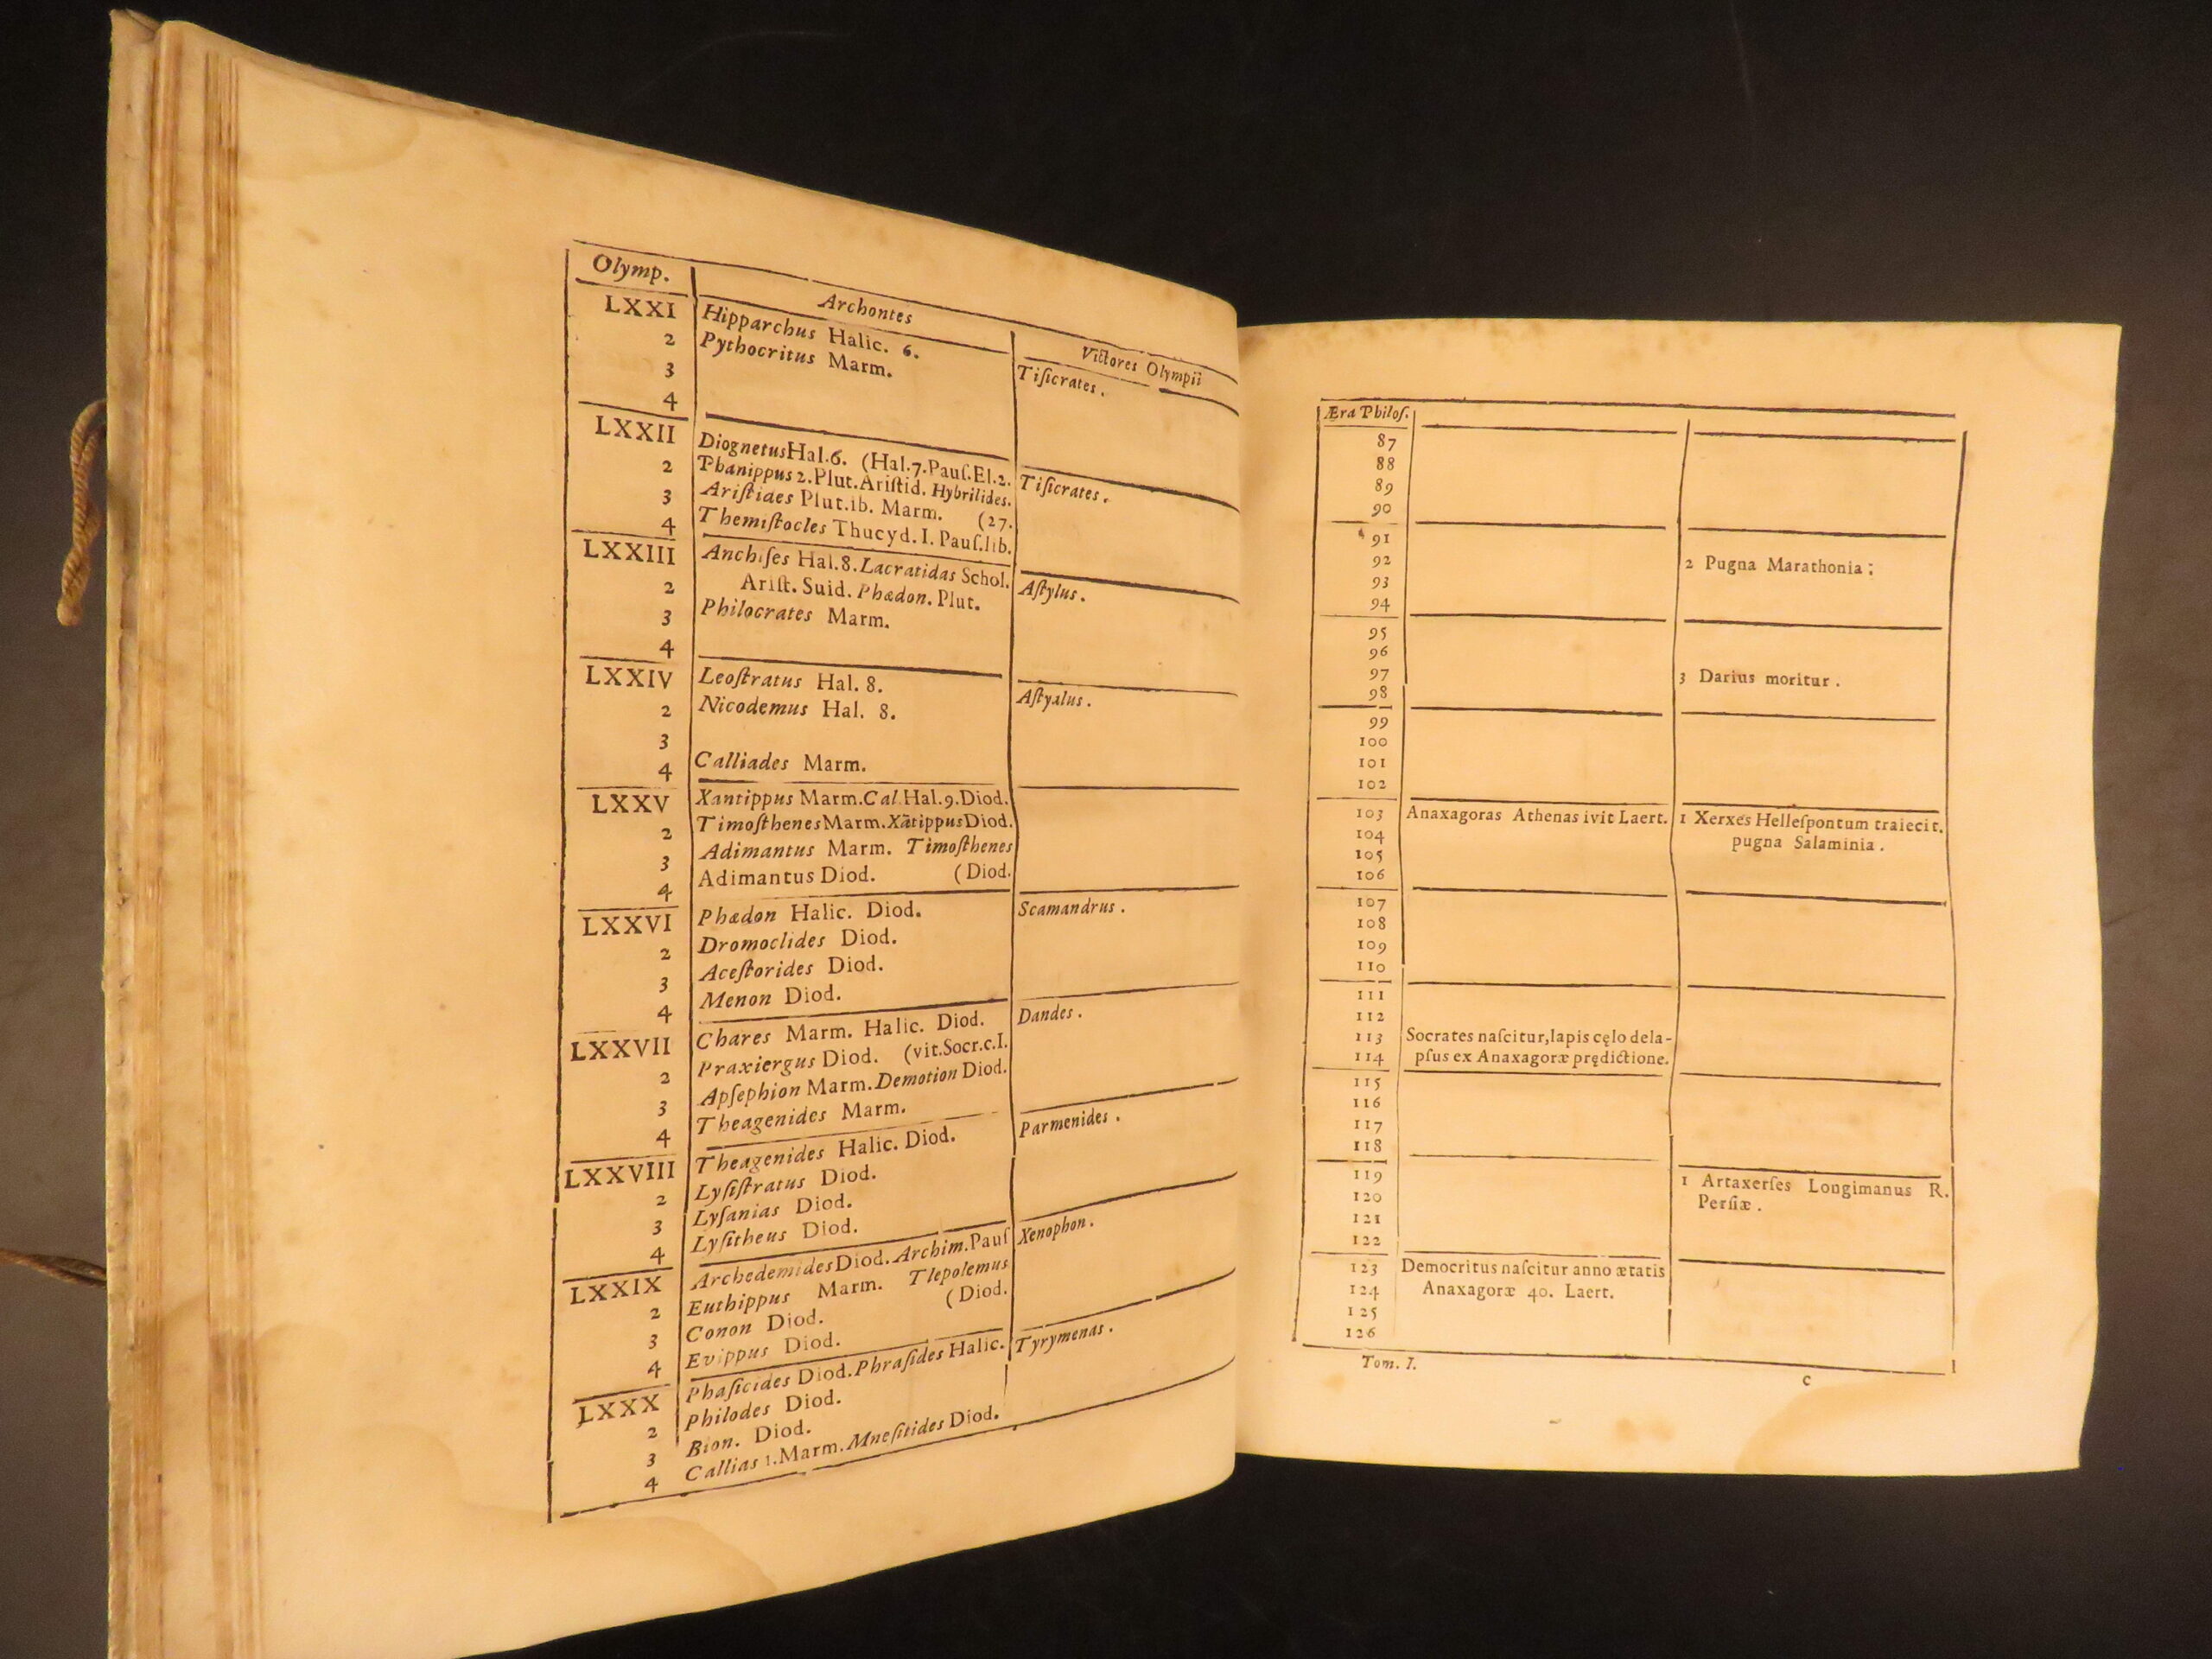 Olymp.
Archontes
Victores Olympii
LXXI
Hipparchus Halic. 6.
Tiſicrates.
2
Pythocritus Marm.
3
4
LXXII
DiognetusHal.6. (Hal.7.Pauſ.El.2.
Tiſicrates.
2
Phanippus 2.Plut.Ariſtid. Hybrilides.
3
Ariſtides Plut.ib. Marm. (27.
4
Themiſtocles Thucyd. I. Pauſ.lib.
LXXIII
Anchiſes Hal.8.Lacratidas Schol.
Aſtylus.
2
Ariſt. Suid. Phædon. Plut.
3
Philocrates Marm.
4
LXXIV
Leoſtratus Hal. 8.
Aſtyalus.
2
Nicodemus Hal. 8.
3
4
Calliades Marm.
LXXV
Xantippus Marm.Cal.Hal.9.Diod.
2
TimoſthenesMarm.XãtippusDiod.
3
Adimantus Marm. Timoſthenes
4
Adimantus Diod. (Diod.
LXXVI
Phædon Halic. Diod.
Scamandrus.
2
Dromoclides Diod.
3
Aceſtorides Diod.
4
Menon Diod.
LXXVII
Chares Marm. Halic. Diod.
Dandes.
2
Praxiergus Diod. (vit.Socr.c.I.
3
Apſephion Marm.Demotion Diod.
4
Theagenides Marm.
LXXVIII
Theagenides Halic. Diod.
Parmenides.
2
Lyſiſtratus Diod.
3
Lyſanias Diod.
4
Lyſitheus Diod.
LXXIX
ArchedemidesDiod.Archim.Pauſ
Xenophon.
2
Euthippus Marm. Tlepolemus
3
Conon Diod. (Diod.
4
Evippus Diod.
LXXX
Phaſicides Diod.Phraſides Halic.
Tyrymenas.
2
Philodes Diod.
3
Bion. Diod.
4
Callias 1.Marm.Mneſitides Diod.
Æra Philoſ.
87
88
89
90
91
92
2 Pugna Marathonia:
93
94
95
96
97
3 Darius moritur.
98
99
100
101
102
103
Anaxagoras Athenas ivit Laert.
1 Xerxes Helleſpontum traiecit.
104
pugna Salaminia.
105
106
107
108
109
110
111
112
113
Socrates naſcitur,lapis cęlo dela-
114
pſus ex Anaxagoræ prędictione.
115
116
117
118
119
1 Artaxerſes Longimanus R.
120
Perſiæ.
121
122
123
Democritus naſcitur anno ætatis
124
Anaxagoræ 40. Laert.
125
126
Tom. I.
C
I